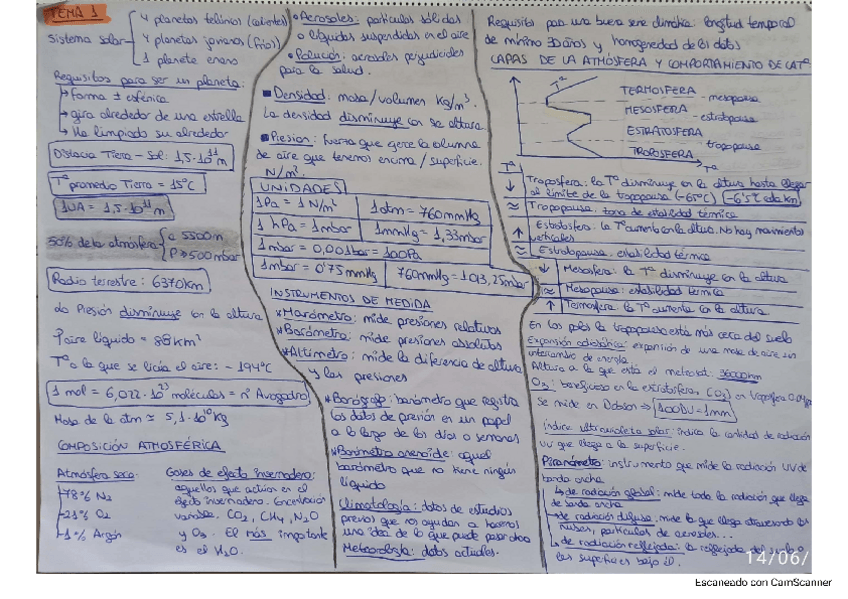 TEMA 1
Sistema solar
4 planetas telúricos (calientes)
4 planetas jovianos (fríos)
1 planeta enano
Requisitos para ser un planeta:
→ forma ± esférica
→ gira alrededor de una estrella
→ Ha limpiado su alrededor
Distancia Tierra - Sol: 1,5·10¹¹ m
Tª promedio Tierra = 15ºC
1UA = 1,5·10¹¹ m
50% de la atmósfera
a 5500m
P ≥ 500mbar
Radio terrestre: 6370km
La Presión disminuye con la altura
ρ aire líquido = 88 km³
Tª a la que se licúa el aire: - 194ºC
1 mol = 6,022·10²³ moléculas = nº Avogadro
Masa de la atm ≃ 5,1·10¹⁸ kg
COMPOSICIÓN ATMOSFÉRICA
Atmósfera seca:
78% N₂
21% O₂
1% Argón
Gases de efecto invernadero:
aquellos que actúan en el
efecto invernadero. Concentración
variable. CO₂, CH₄, N₂O
y O₃. El más importante
es el H₂O.
• Aerosoles: partículas sólidas
o líquidas suspendidas en el aire
• Polución: aerosoles perjudiciales
para la salud.
■ Densidad: masa/volumen kg/m³.
La densidad disminuye con la altura.
■ Presión: fuerza que ejerce la columna
de aire que tenemos encima / superficie.
N/m².
UNIDADES
1Pa = 1 N/m²
1atm = 760mmHg
1 hPa = 1mbar
1mmHg = 1,33mbar
1mbar = 0,001bar = 100Pa
1mbar = 0'75mmHg
760mmHg = 1013,25mbar
INSTRUMENTOS DE MEDIDA
* Manómetro: mide presiones relativas
* Barómetro: mide presiones absolutas
* Altímetro: mide la diferencia de altura
y las presiones
* Barógrafo: barómetro que registra
los datos de presión en un papel
a lo largo de los días o semanas
* Barómetro aneroide: aquel
barómetro que no tiene ningún
líquido
Climatología: datos de estudios
previos que nos ayudan a hacernos
una idea de lo que puede pasar
Meteorología: datos actuales.
Requisitos para una buena serie climática: longitud temporal
de mínimo 30 años y homogeneidad de los datos
CAPAS DE LA ATMÓSFERA Y COMPORTAMIENTO DE LA Tª
Tª
TERMOSFERA
- mesopausa
MESOSFERA
- estratopausa
ESTRATOSFERA
- tropopausa
TROPOSFERA
Tª
Tª
↓ Troposfera: la Tª disminuye con la altura hasta llegar
al límite de la tropopausa (-65ºC) -6'5ºC cada km
≈ Tropopausa: zona de estabilidad térmica
↑ Estratosfera: la Tª aumenta con la altura. No hay movimientos
verticales
≈ Estratopausa: estabilidad térmica
↓ Mesosfera: la Tª disminuye con la altura
≈ Mesopausa: estabilidad térmica
↑ Termosfera: la Tª aumenta con la altura.
En los polos la tropopausa está más cerca del suelo
Expansión adiabática: expansión de una masa de aire sin
intercambio de energía
Altura a la que está el meteosat: 36000km
O₃: beneficioso en la estratosfera,
Se mide en Dobson ⇒ 100DU = 1mm
Índice ultravioleta solar: indica la cantidad de radiación
UV que llega a la superficie.
Piranómetro: instrumento que mide la radiación UV de
banda ancha
↳ de radiación global: mide toda la radiación que llega
de banda ancha
→ de radiación difusa: mide la que llega atravesando las
nubes, partículas de aerosoles...
↳ de radiación reflejada: la reflejada del suelo o
las superficies bajo él.
14/06/
Escaneado con CamScanner